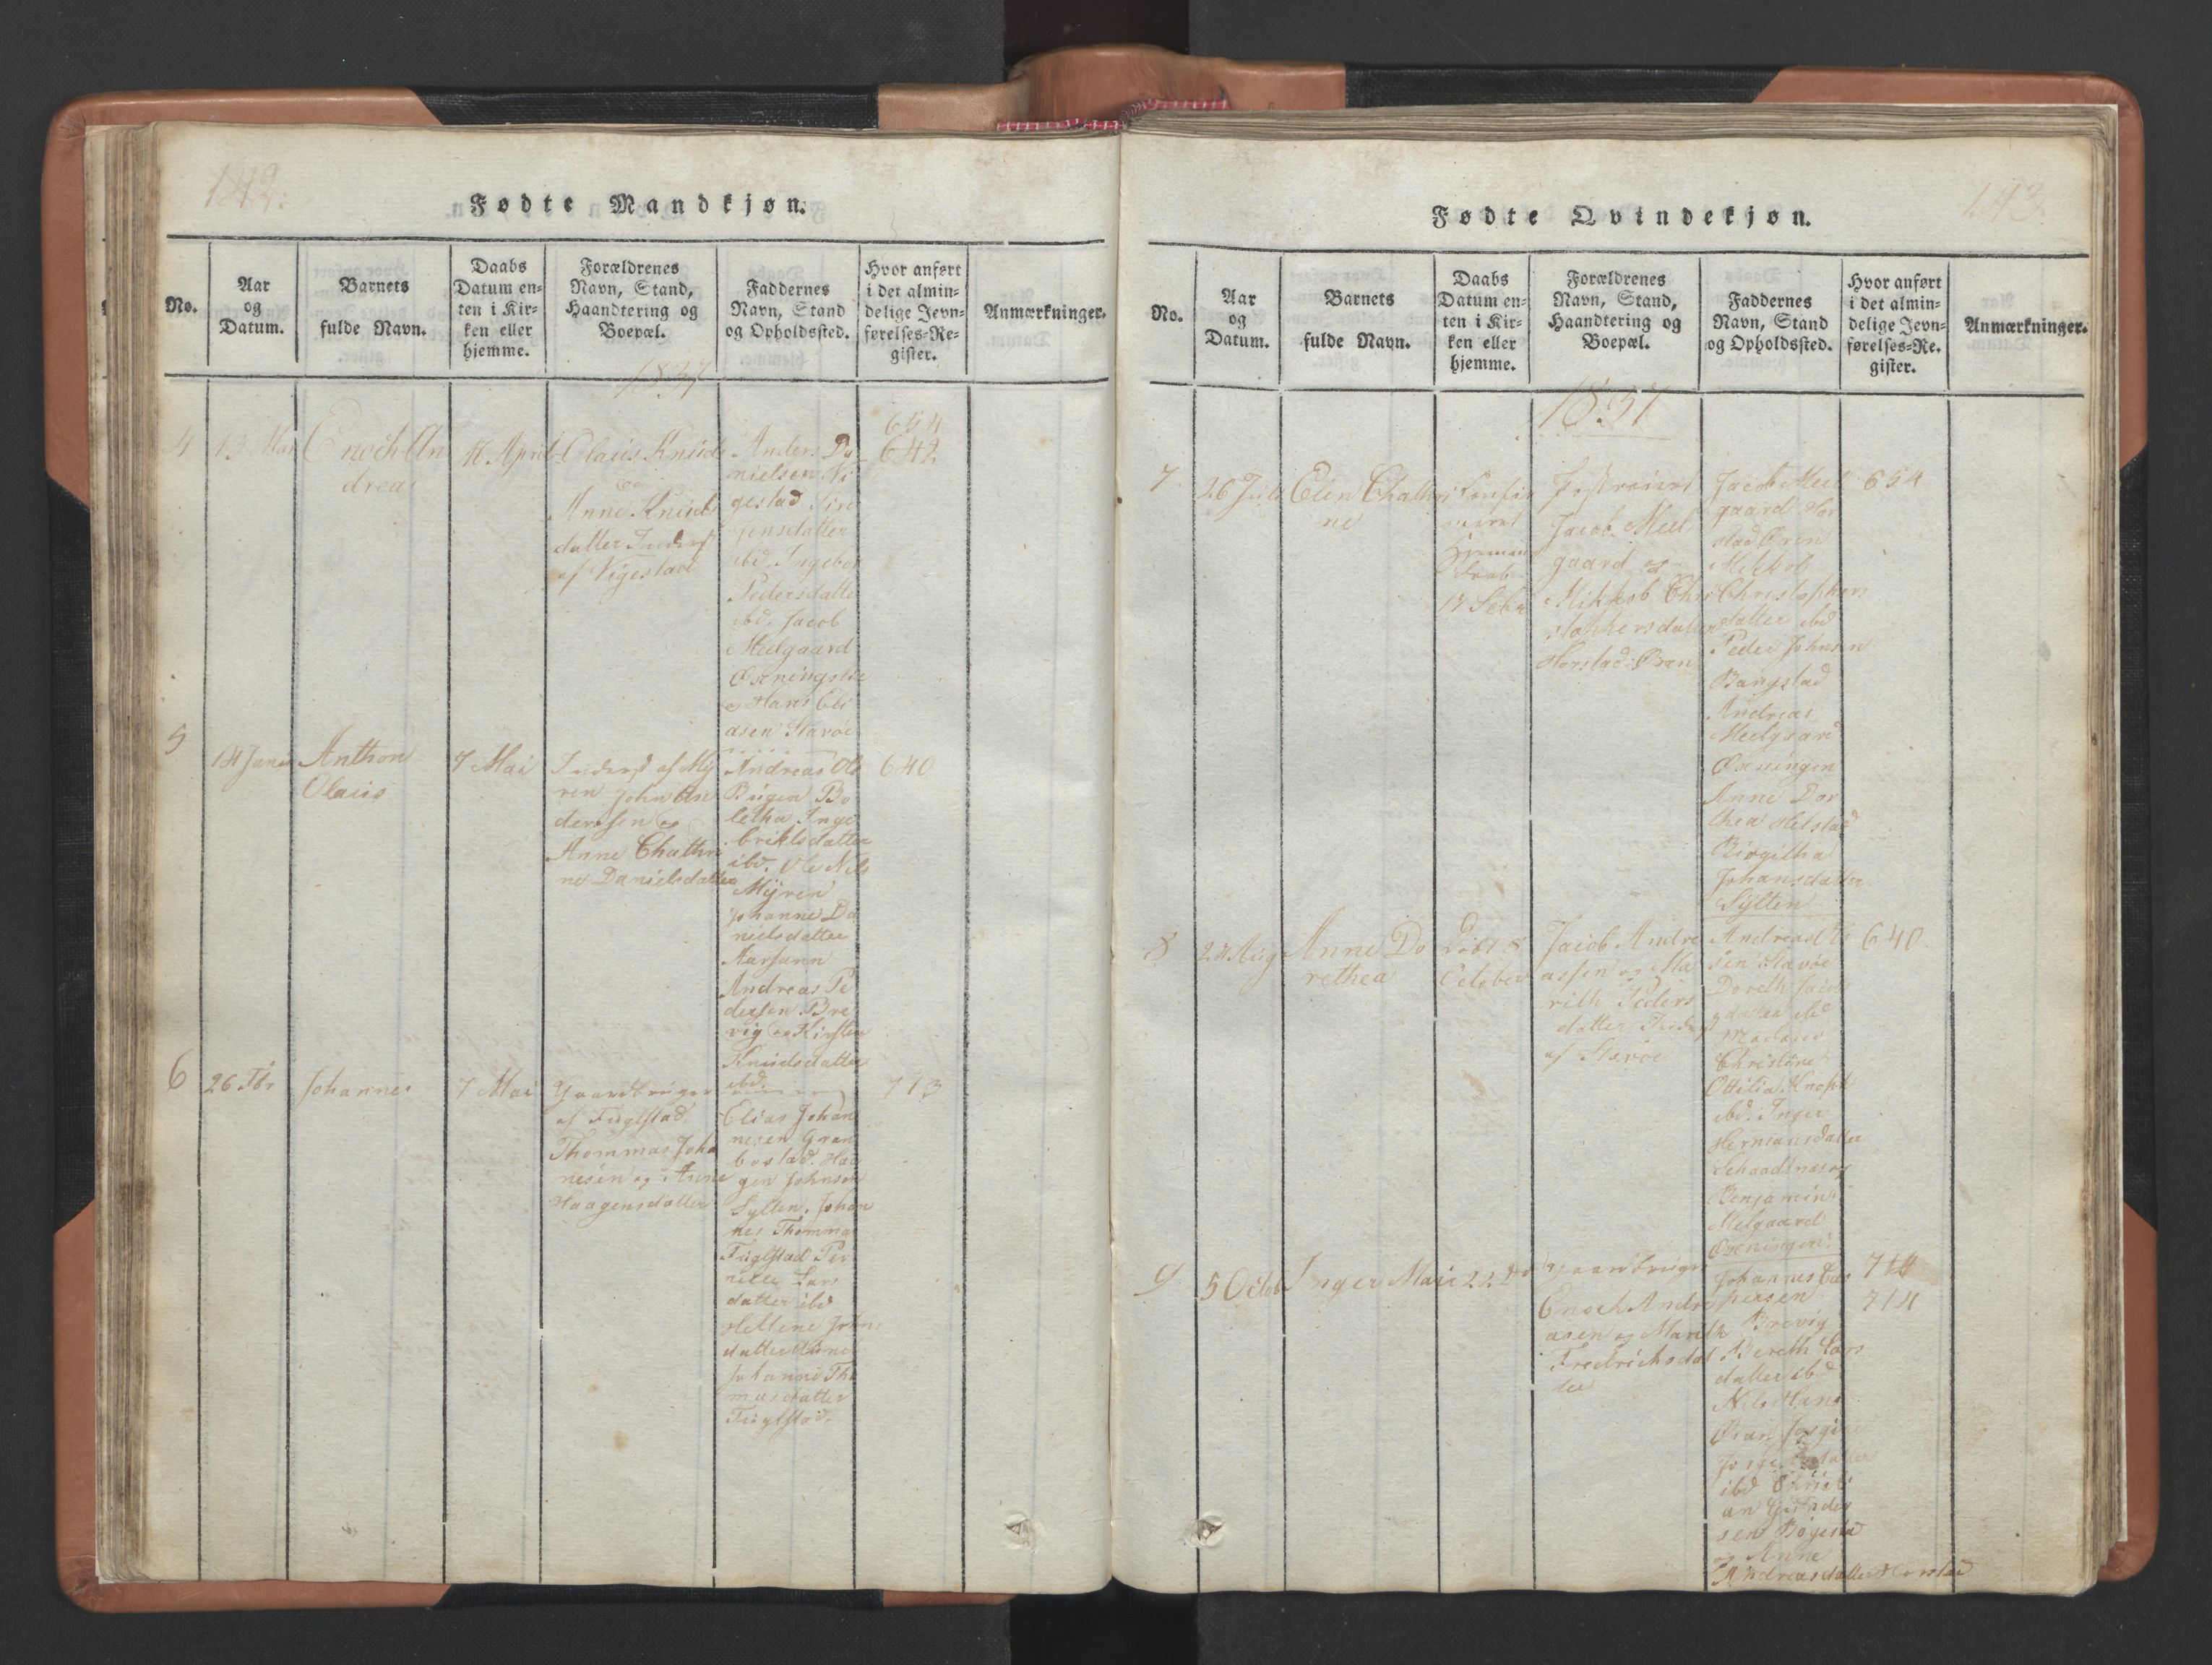 142.
Fødte Mandkjøn.
No.
Aar
og
Datum.
Barnets
fulde Navn.
Daabs
Datum en-
ten i Kir-
ken eller
hjemme.
Forældrenes
Navn, Stand,
Haandtering og
Boepæl.
Faddernes
Navn, Stand
og Opholdssted.
Hvor anført
i det almin-
delige Jevn-
førelses-Re-
gister.
Anmærkninger.
1837
4
13 Mar
Enoch An
drea
16 April
Olaus Knud
og
Anne Knud
datter Inderst
af Vigestad
Anders Da
nielsen Vi
gestad
Jensdatter
ibd. Ingebor
Pedersdatter
ibd. Jacob
Meelgaard
Øxningen
og Hans Eli
asen Starøe
654
642
5
14 Janu
Anthon
Olaus
7 Mai
Inderst af My
ren John An
dersen og
Anne Chathri
ne Danielsdatter
Andreas Ols
Bugen Bo
letha Inge
brigtsdatter
ibd. Ole Nils
Myren
Johanne Da
nielsdatter
Aarsann
Andreas Pe
dersen Bre
vig og Kirsten
Knudsdatter
ibd.
640
6
26 Fbr
Johannes
7 Mai
Gaardbruger
af Fuglstad
Thommas Joha
nesen og Anne
Haagensdatter
Elias Johan
nesen Gran
bostad. Haa
gen Johnsen
Sylten. Johan
nes Thommas
Fuglstad Per
nille Lars
datter ibd
Hellene John
datter
Johanne Tho
masdatter
Fuglstad.
713
143
Fødte Qvindekjøn.
No.
Aar
og
Datum.
Barnets
fulde Navn.
Daabs
Datum en-
ten i Kir-
ken eller
hjemme.
Forældrenes
Navn, Stand,
Haandtering og
Boepæl.
Faddernes
Navn, Stand
og Opholdssted.
Hvor anført
i det almin-
delige Jevn-
førelses-Re-
gister.
Anmærkninger.
1837
7
26 Juli
Elen Chathri
ne
Confir
meret
Hjemme
daab
17 Sebr
Jacob Meel
gaard og
Mikkob Chri
stophersdatter
Horstad Øren
Jacob Meel
gaard Hor
stad Øren
Mikkob
Christophers
datter ibd
Peder Johnsen
Bangstad
Andreas
Meelgaard
Øxningen
Anne Dor
thea Helstad
Birgitha
Johansdatter
Sylten
654
8
27 Aug
Anne Do
rethea
Døbt 8
October
Jacob Andre
assen og Ma
rith Peders
datter Inderst
af Starøe
Andreas El
sen Starøe
Doreth Jacobs
datter ibd
Madame
Christine
Ottilia Knoph
ibd. Inger
Hermansdatter
og
Benjamin
Melgaard
Øxningen.
640
9
5 Octob
Inger Marie
22 do
Gaardbruger
Enoch Andre
asen og Marith
Fredrichsdat
ter
Johannes Cas
persen
Brevig
Bereth Lars
datter ibd
Nils Hans
Øran
ibd Christi
an
sen Bøgestad
og Anne
Andreasdatter Horstad
714
714